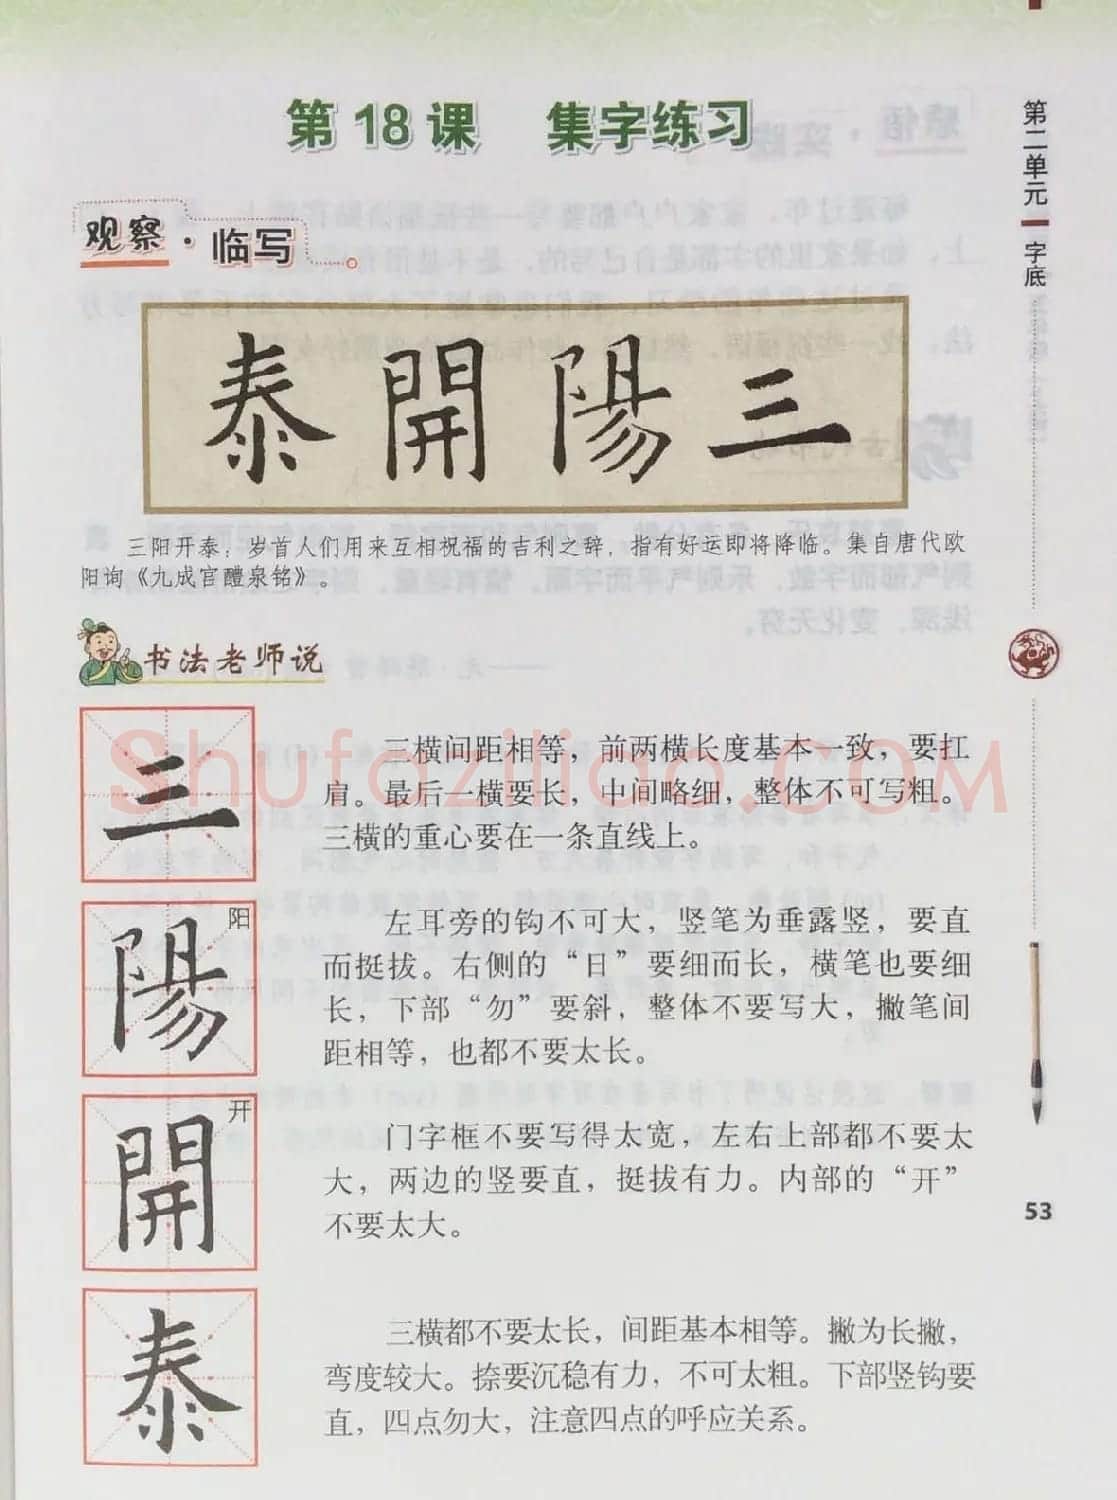 第18课 集字练习
观察·临写
泰開陽三
三阳开泰：岁首人们用来互相祝福的吉利之辞，指有好运即将降临。集自唐代欧
阳询《九成宫醴泉铭》。
书法老师说
三
三横间距相等，前两横长度基本一致，要扛
肩。最后一横要长，中间略细，整体不可写粗。
三横的重心要在一条直线上。
陽
阳
左耳旁的钩不可大，竖笔为垂露竖，要直
而挺拔。右侧的“日”要细而长，横笔也要细
长，下部“勿”要斜，整体不要写大，撇笔间
距相等，也都不要太长。
開
开
门字框不要写得太宽，左右上部都不要太
大，两边的竖要直，挺拔有力。内部的“开”
不要太大。
泰
三横都不要太长，间距基本相等。撇为长撇，
弯度较大。捺要沉稳有力，不可太粗。下部竖钩要
直，四点勿大，注意四点的呼应关系。
第二单元
字底
53
Shufaziliao.COM